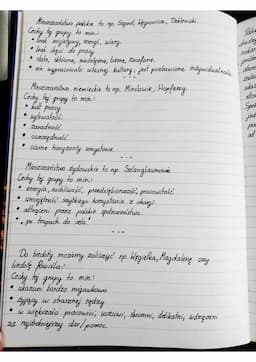 Mieszczaństwo polskie to np. Szprot, Węgrowicz, Deklewski.
Cechy tej grupy to min:
• brak inicjatywy, energii, wiary.
• brak chęci do pracy
• słabe, skłócone, nieudolne, bierne, zacofane.
• nie wypracowało własnej kultury, jest pozbawione indywidualności
Mieszczaństwo niemieckie to np. Minclowie, Hopferzy.
Cechy tej grupy to min:
• kult pracy
• wytrwałość
• zaradność
• oszczędność
• ciasne horyzonty umysłowe.
Mieszczaństwo żydowskie to np. Szlangbaumowie
Cechy tej grupy to min:
• energia, ruchliwość, przedsiębiorczość, pracowitość
• umiejętność szybkiego korzystania z okazji.
• odtrąceni przez polskie społeczeństwo.
• „po trupach do celu"
Do biedoty możemy zaliczyć np. Węgiełka, Magdalenę czy
biedotę Powiśla:
Cechy tej grupy to min:
• ukazani bardzo migawkowo
• żyjący w strasznej nędzy
• w większości pracowici, uczciwi, skromni, delikatni, wdzięczni
za najdrobniejszy dar/pomoc.